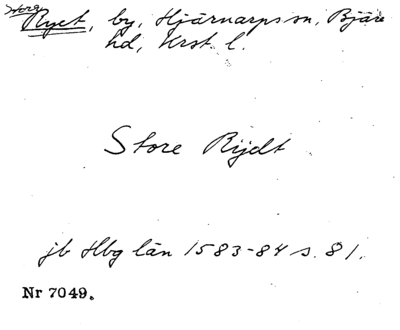 Stora
Ryet, by, Hjärnarps sn, Bjäre
hd, Krst. l.
Store Rijdt
jb Hbg län 1583-84 s. 81.
Nr 7049.